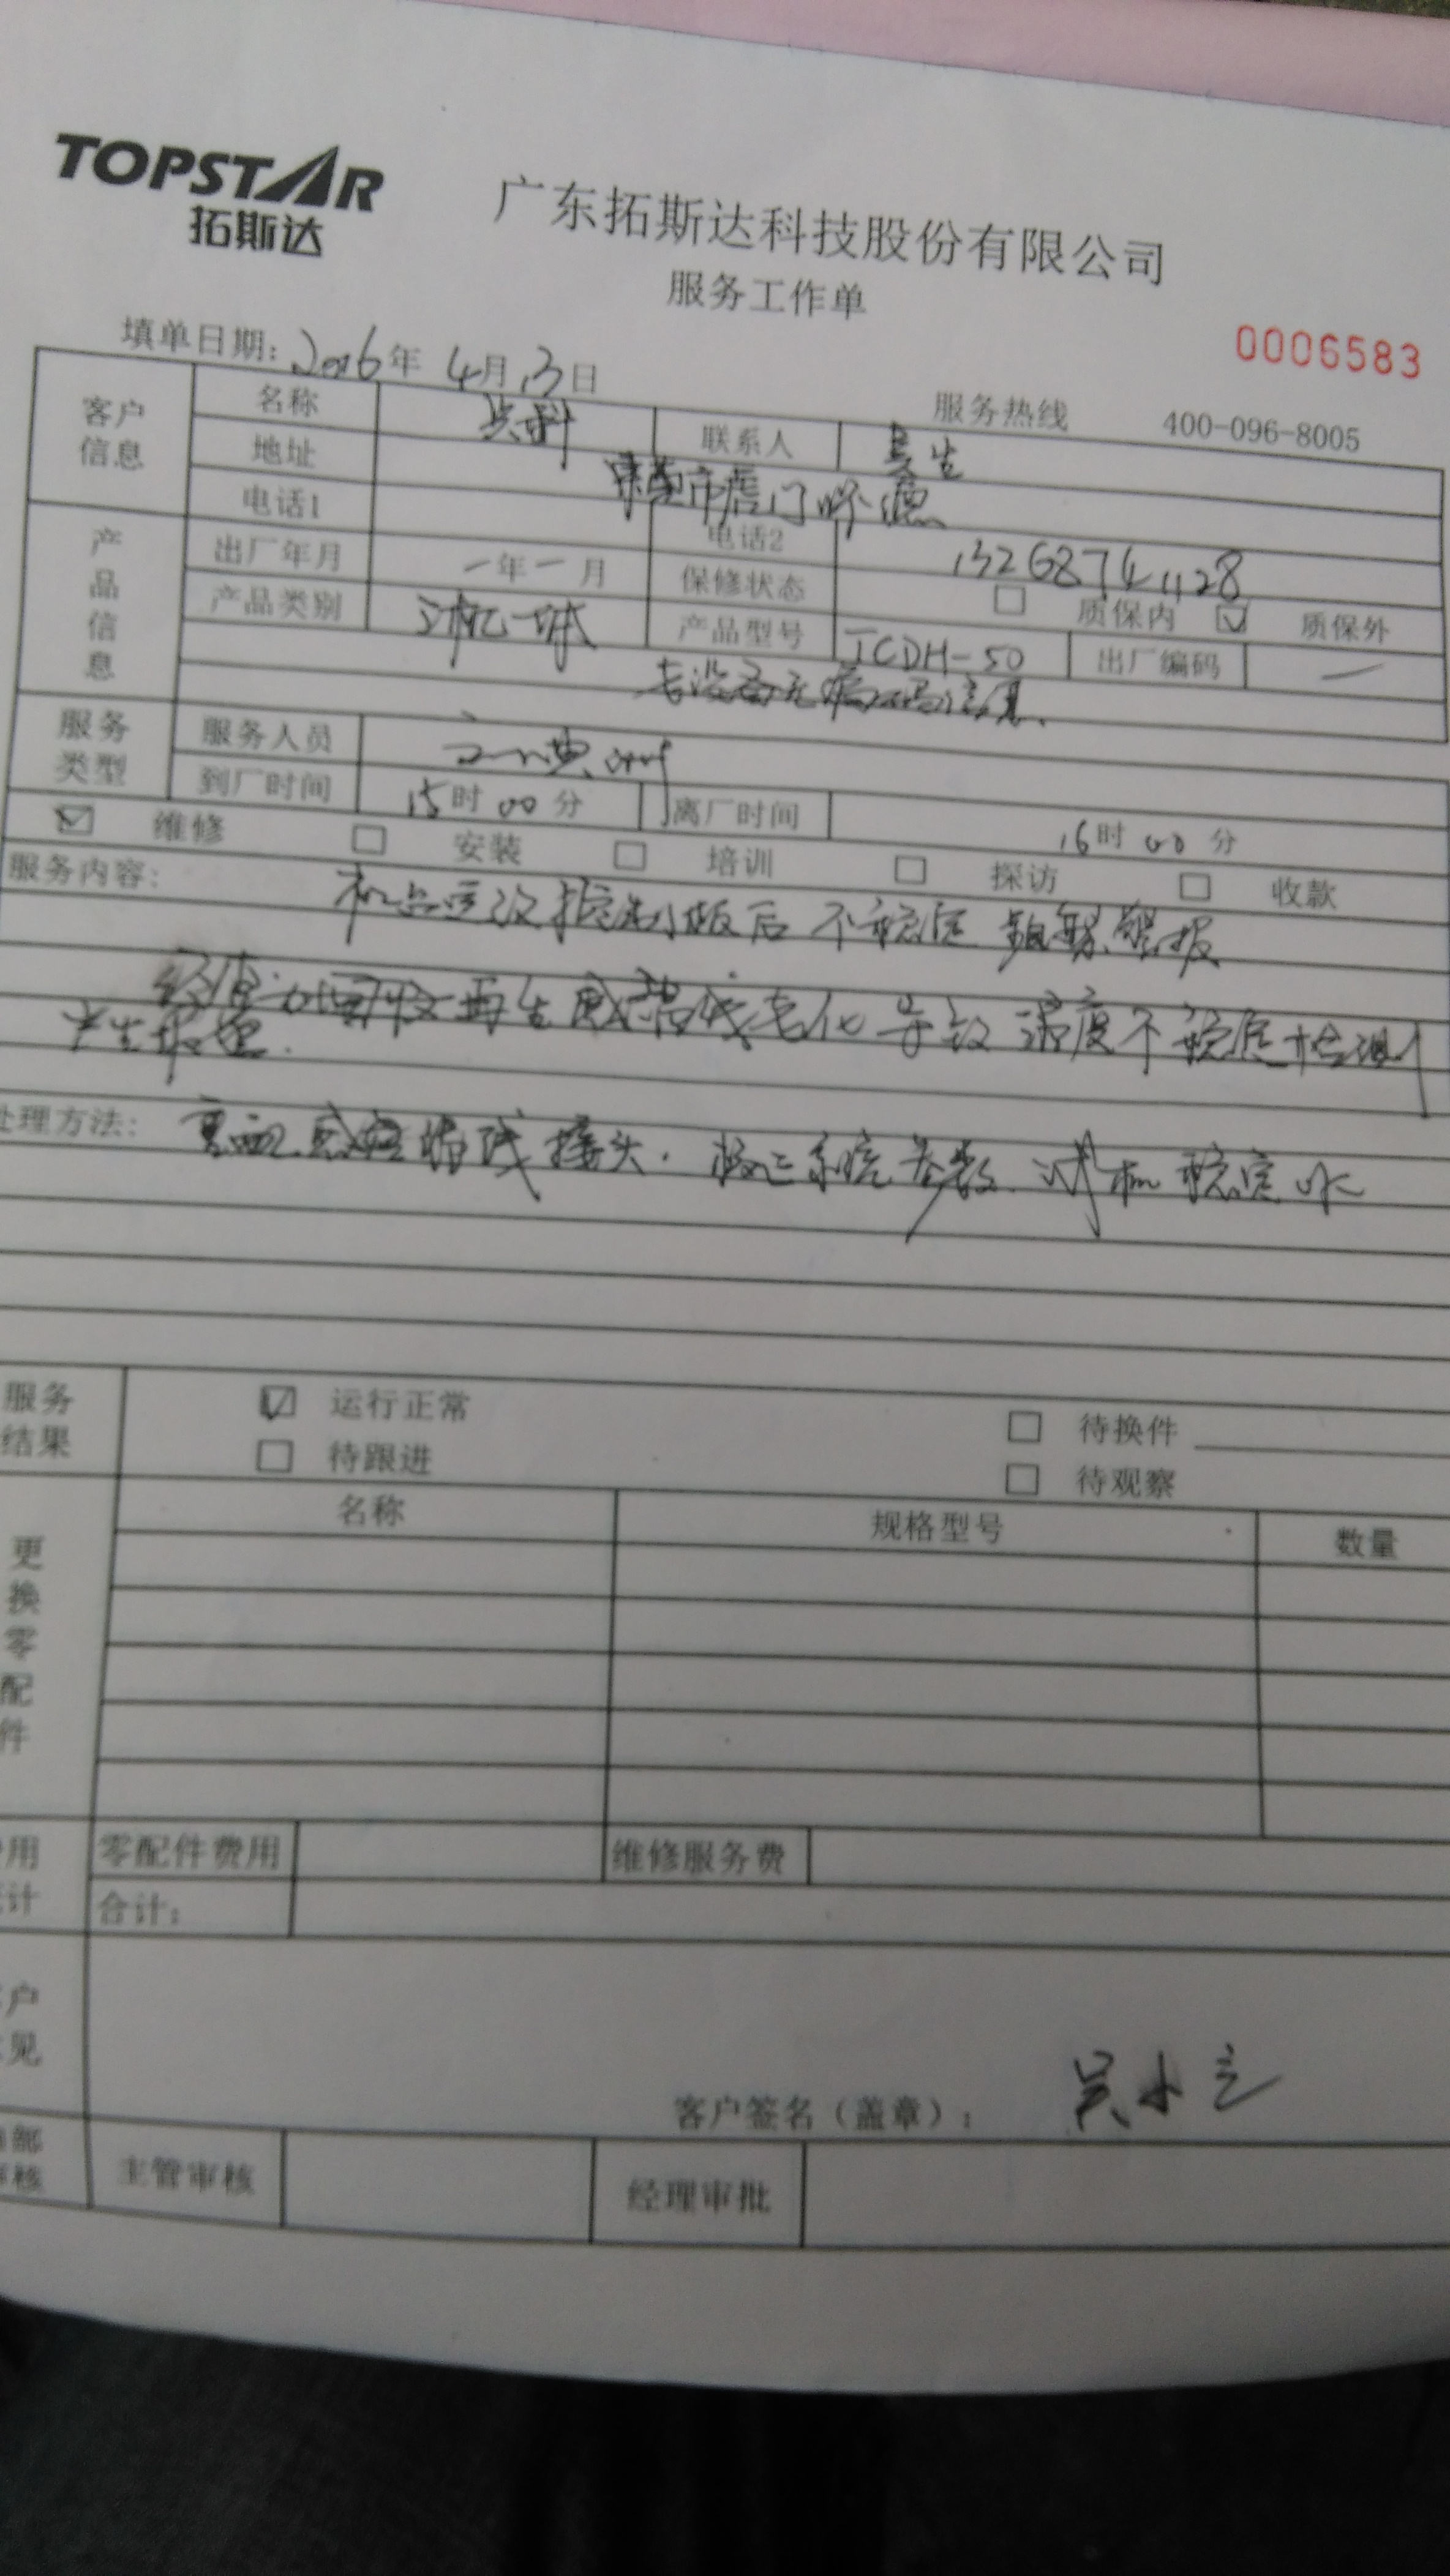 TOPSTAR
拓斯达
广东拓斯达科技股份有限公司
服务工作单
0006583
填单日期: 2016年 4月13日
服务热线 400-096-8005
客户信息
名称 联系人 吴生
地址 东莞市虎门
电话1 电话2 13268741128
产品信息
出厂年月 一年一月 保修状态 质保内 质保外
产品类别 三机一体 产品型号 TCDH-50 出厂编码 一
老设备无编码信息.
服务类型
服务人员
到厂时间 15时00分 离厂时间 16时00分
维修 安装 培训 探访 收款
服务内容: 机台更改控制板后 不稳定 频繁警报
经查 再生感温线老化 导致 温度不稳定 检测
产生
处理方法: 感温线 接头. 校正系统参数. 试机 稳定
服务结果
运行正常 待换件
待跟进 待观察
更换零配件
名称 规格型号 数量
零配件费用 维修服务费
合计:
客户签名（盖章）: 吴
主管审核 经理审批